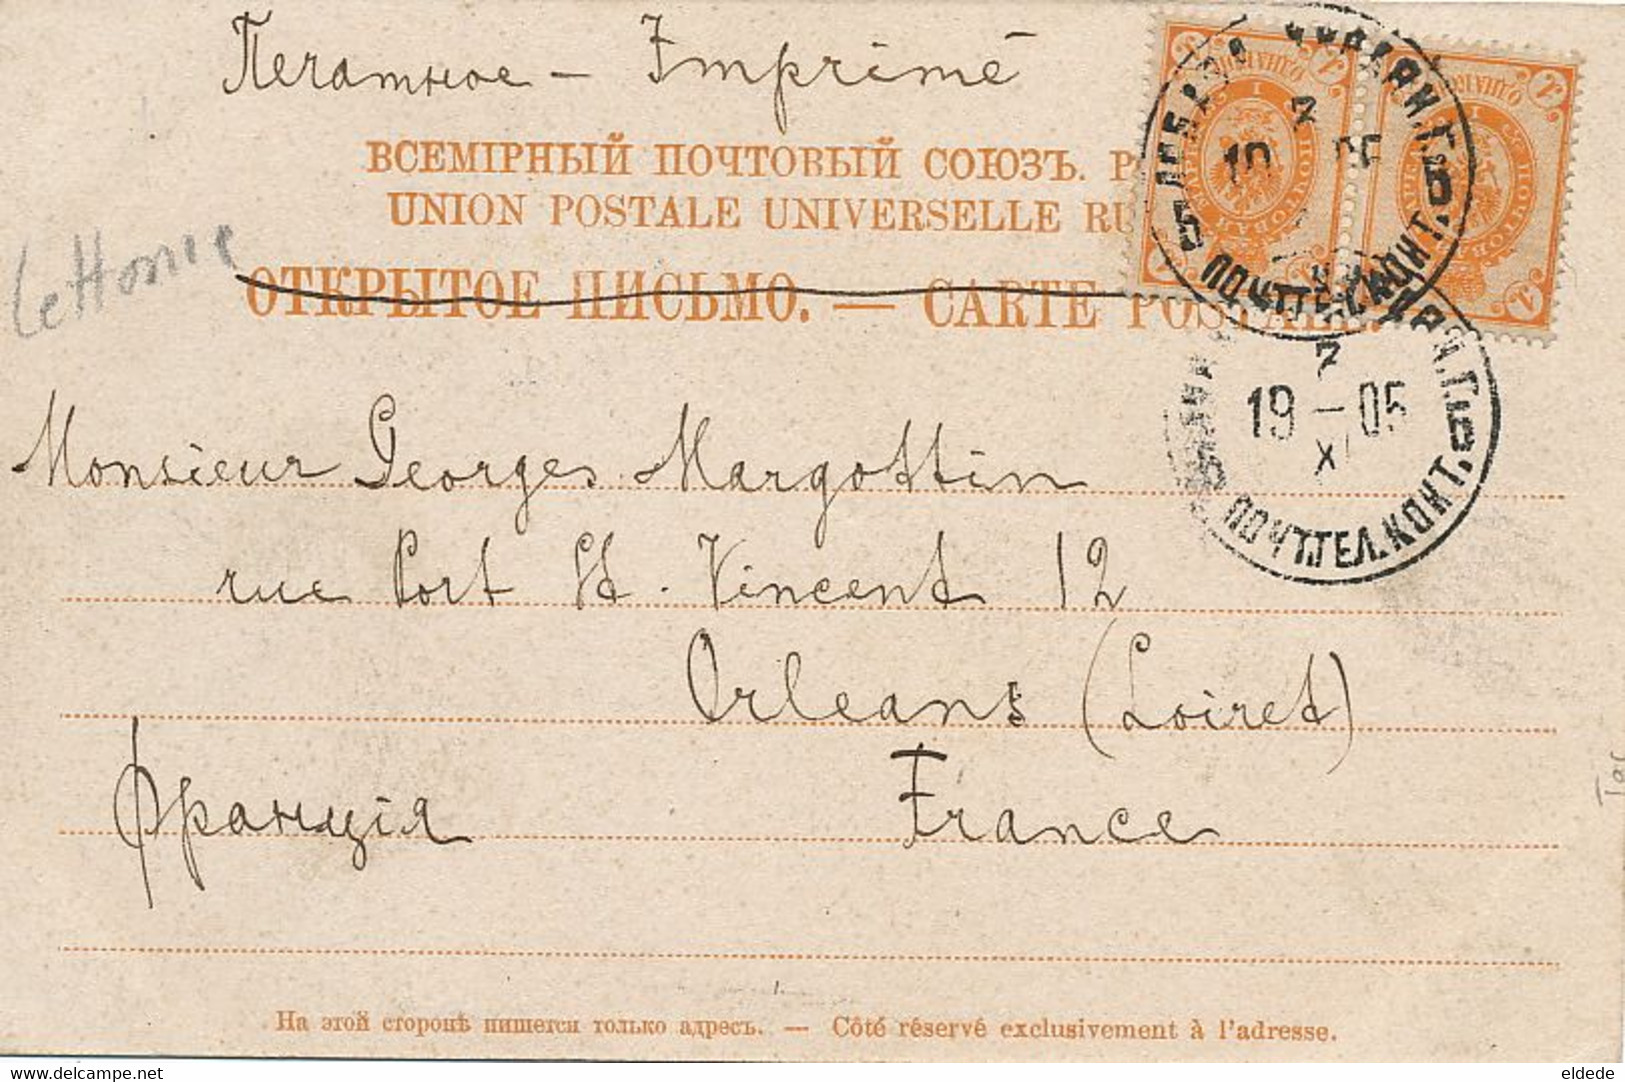 Печатное — Imprimé
ВСЕМІРНЫЙ ПОЧТОВЫЙ СОЮЗЪ.
UNION POSTALE UNIVERSELLE RU
Lettonie
ОТКРЫТОЕ ПИСЬМО. — CARTE POSTALE.
19 — 05
X
ПОЧТ.ТЕЛ.КОНТ.
Monsieur Georges Margottin
rue Port St. Vincent 12
Orleans (Loiret)
Франція France
На этой сторонѣ пишется только адресъ. — Côté réservé exclusivement à l'adresse.
www.delcampe.net
eldede